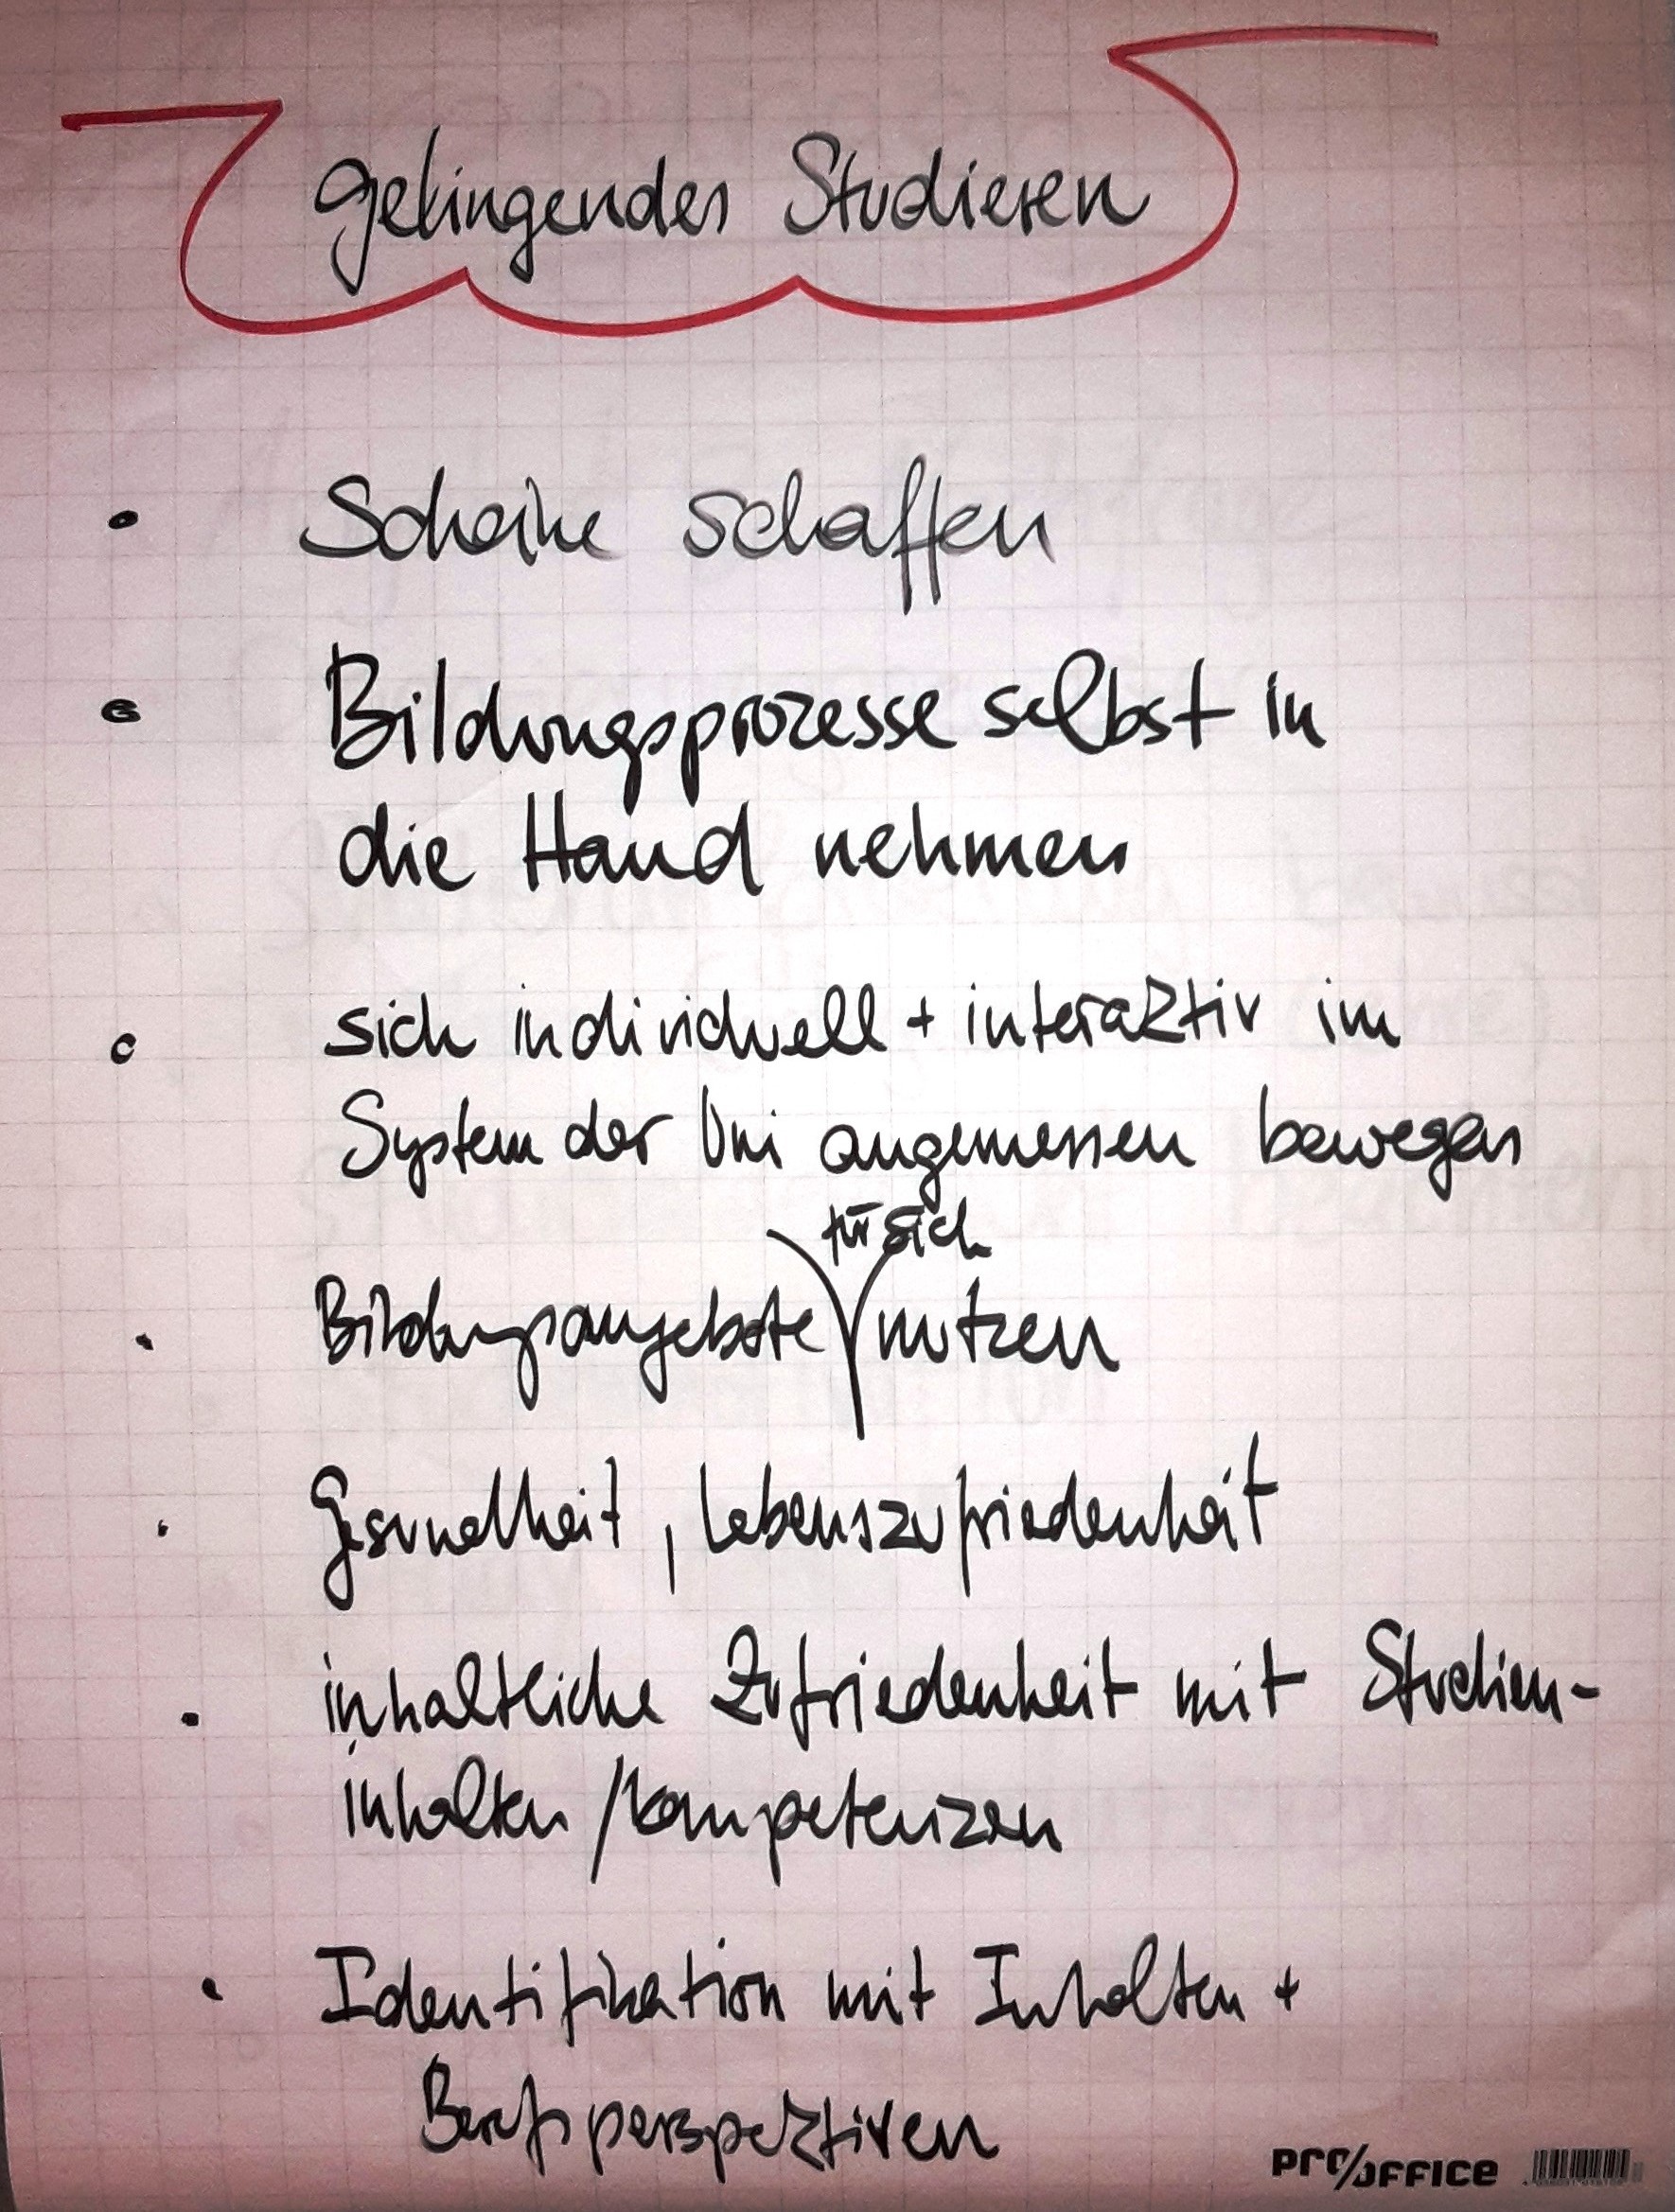 gelingendes Studieren
• Scheine schaffen
• Bildungsprozesse selbst in
die Hand nehmen
• sich individuell + interaktiv im
System der Uni angemessen bewegen
für sich
• Bildungsangebote nutzen
• Gesundheit, Lebenszufriedenheit
• inhaltliche Zufriedenheit mit Studien-
inhalten / kompetenzen
• Identifikation mit Inhalten +
Berufsperspektiven
PRO/OFFICE